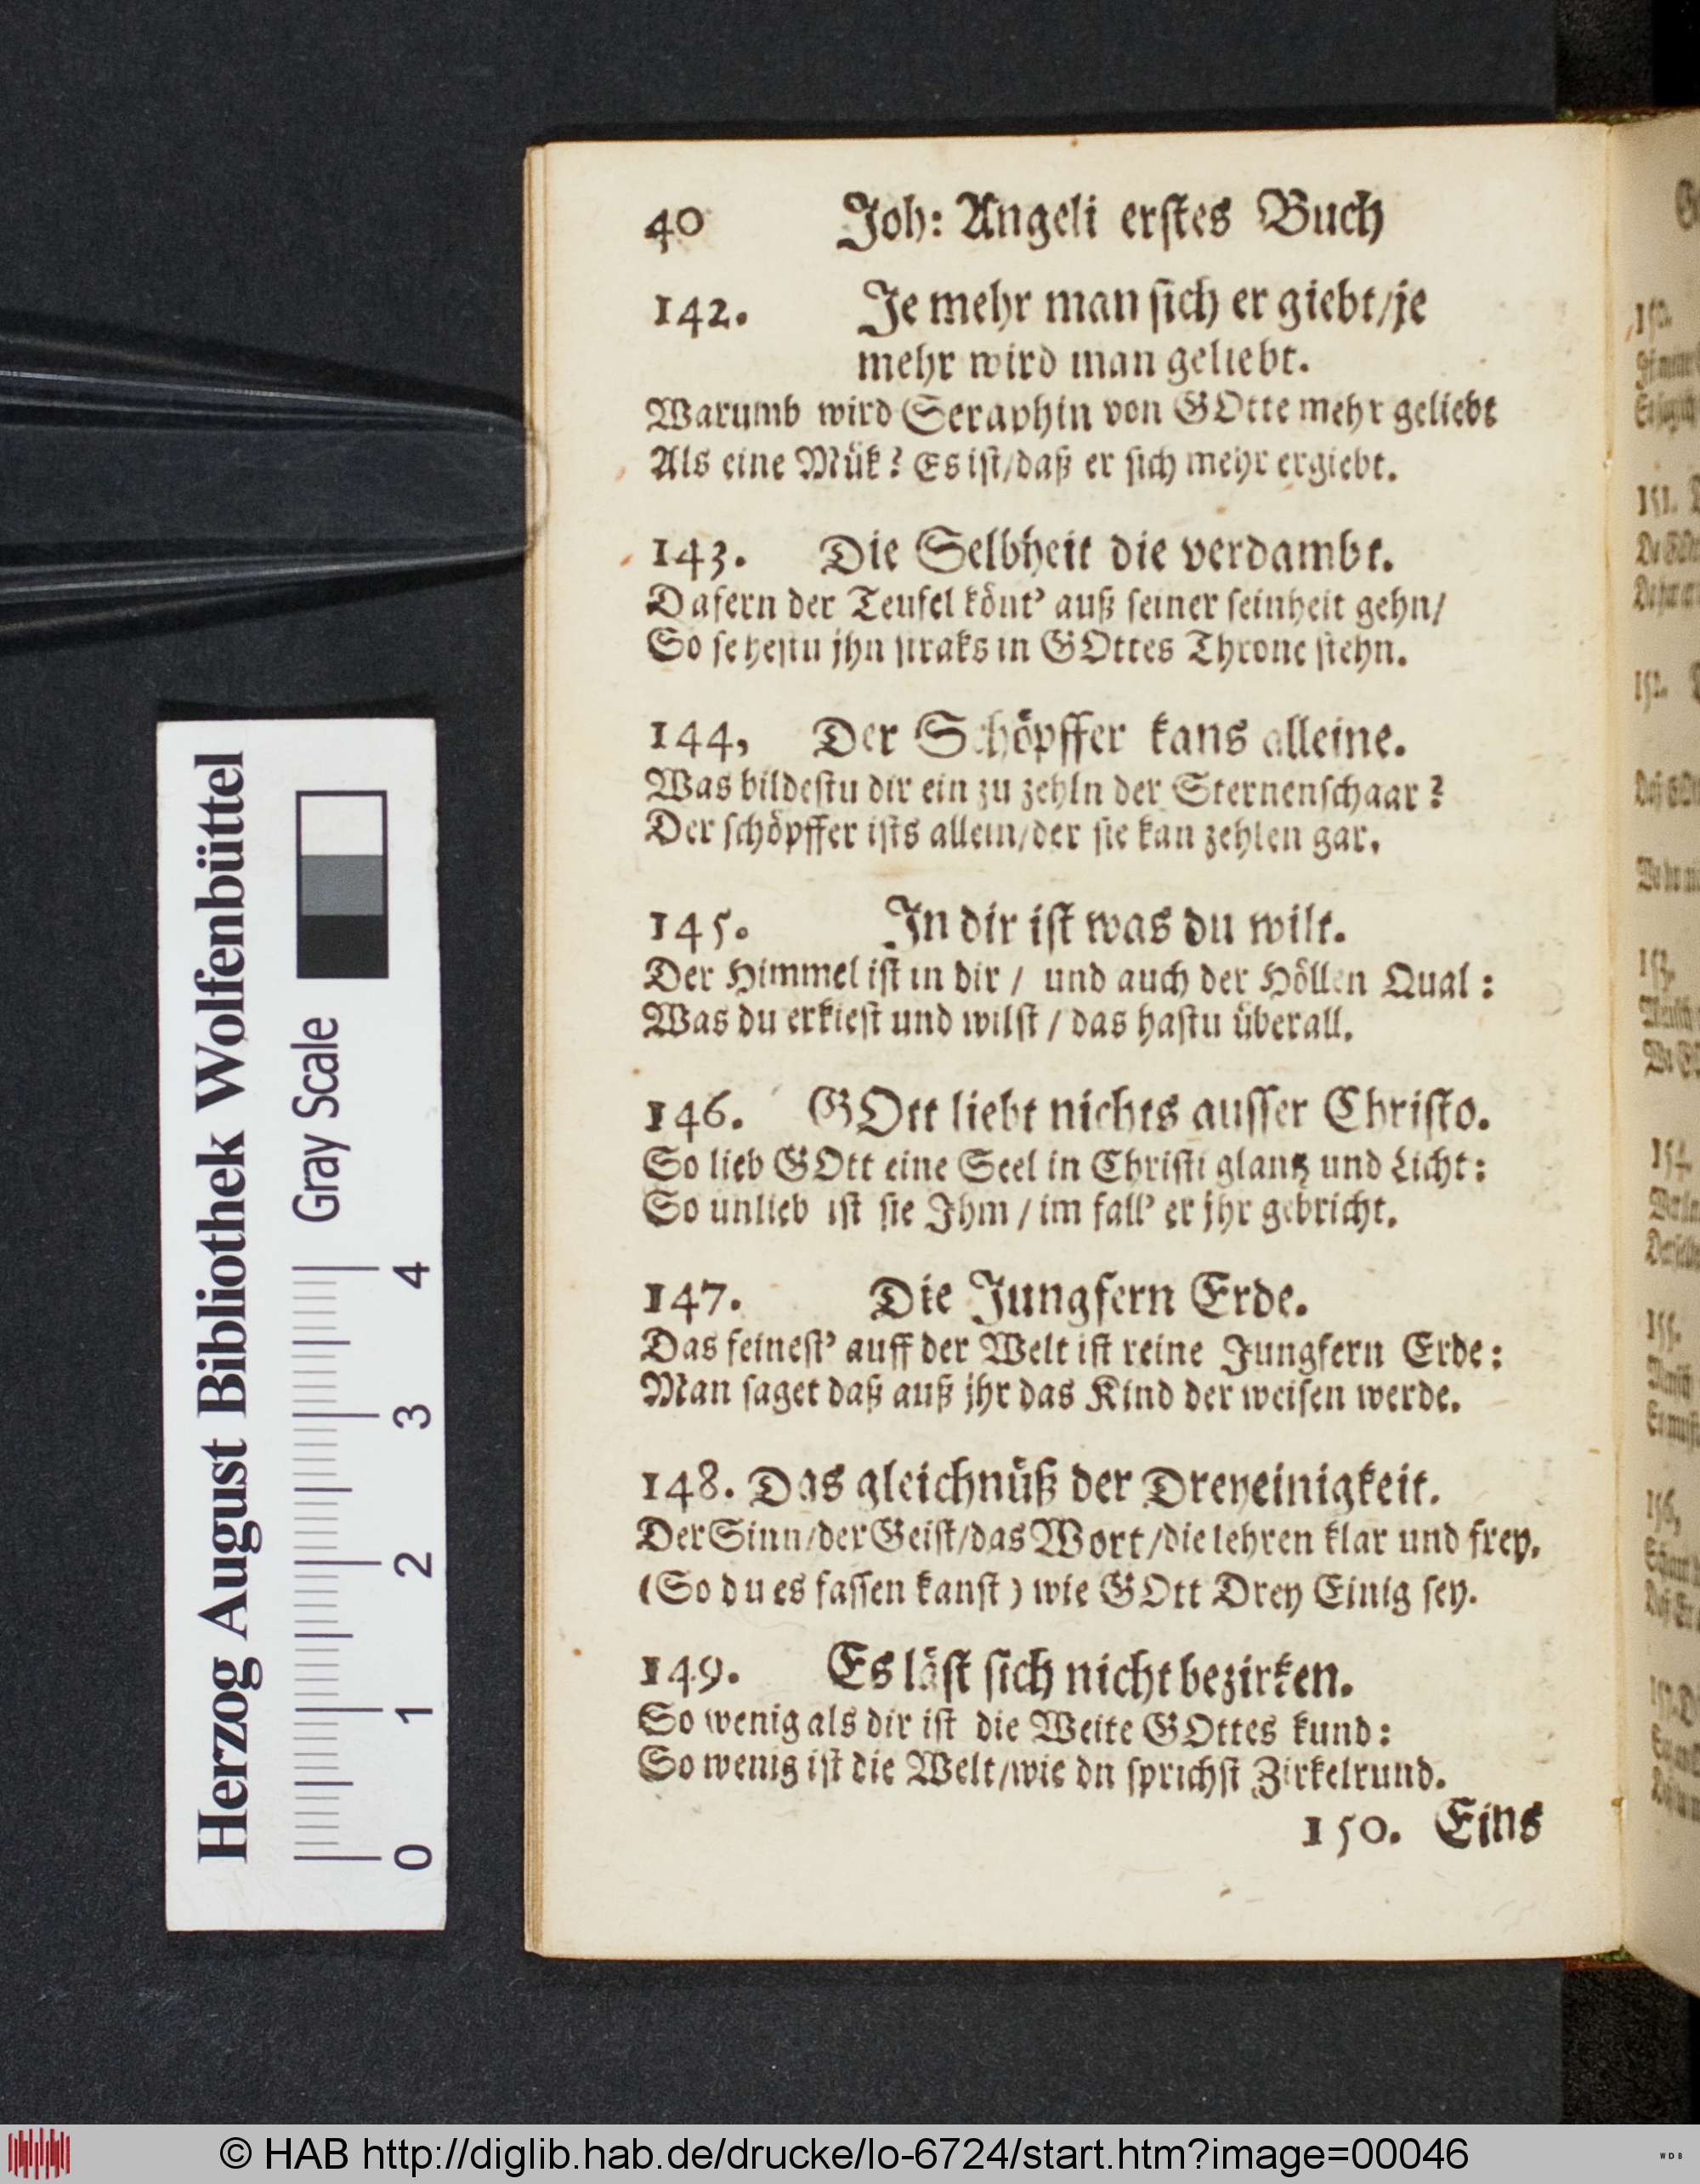 40 Joh: Angeli erstes Buch
142. Je mehr man sich er giebt/je
mehr wird man geliebt.
Warumb wird Seraphin von GOtte mehr geliebt
Als eine Mük? Es ist/daß er sich mehr ergiebt.
143. Die Selbheit die verdambt.
Dafern der Teufel könt' auß seiner seinheit gehn/
So sehestu jhn straks in GOttes Throne stehn.
144, Der Schöpffer kans alleine.
Was bildestu dir ein zu zehln der Sternenschaar?
Der schöpffer ists allein/der sie kan zehlen gar.
145. In dir ist was du wilt.
Der Himmel ist in dir / und auch der Höllen Qual:
Was du erkiest und wilst / das hastu überall.
146. GOtt liebt nichts ausser Christo.
So lieb GOtt eine Seel in Christi glantz und Licht:
So unlieb ist sie Ihm / im fall' er jhr gebricht.
147. Die Jungfern Erde.
Das feinest' auff der Welt ist reine Jungfern Erde:
Man saget daß auß jhr das Kind der weisen werde.
148. Das gleichnüß der Dreyeinigkeit.
Der Sinn/der Geist/das Wort/die lehren klar und frey.
(So du es fassen kanst) wie GOtt Drey Einig sey.
149. Es läst sich nicht bezirken.
So wenig als dir ist die Weite GOttes kund:
So wenig ist die Welt/wie dn sprichst Zirkelrund.
150. Eins
Herzog August Bibliothek Wolfenbüttel
Gray Scale
0 1 2 3 4
© HAB http://diglib.hab.de/drucke/lo-6724/start.htm?image=00046
WDB